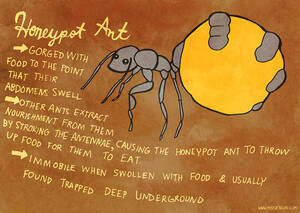 Honeypot Ant
→GORGED WITH
FOOD TO THE POINT
THAT THEIR
ABDOMENS SWELL
→OTHER ANTS EXTRACT
NOURISHMENT FROM THEM
BY STROKING THE ANTENNAE, CAUSING THE HONEYPOT ANT TO THROW
UP FOOD FOR THEM TO EAT.
→IMMOBILE WHEN SWOLLEN WITH FOOD & USUALLY
FOUND TRAPPED DEEP UNDERGROUND